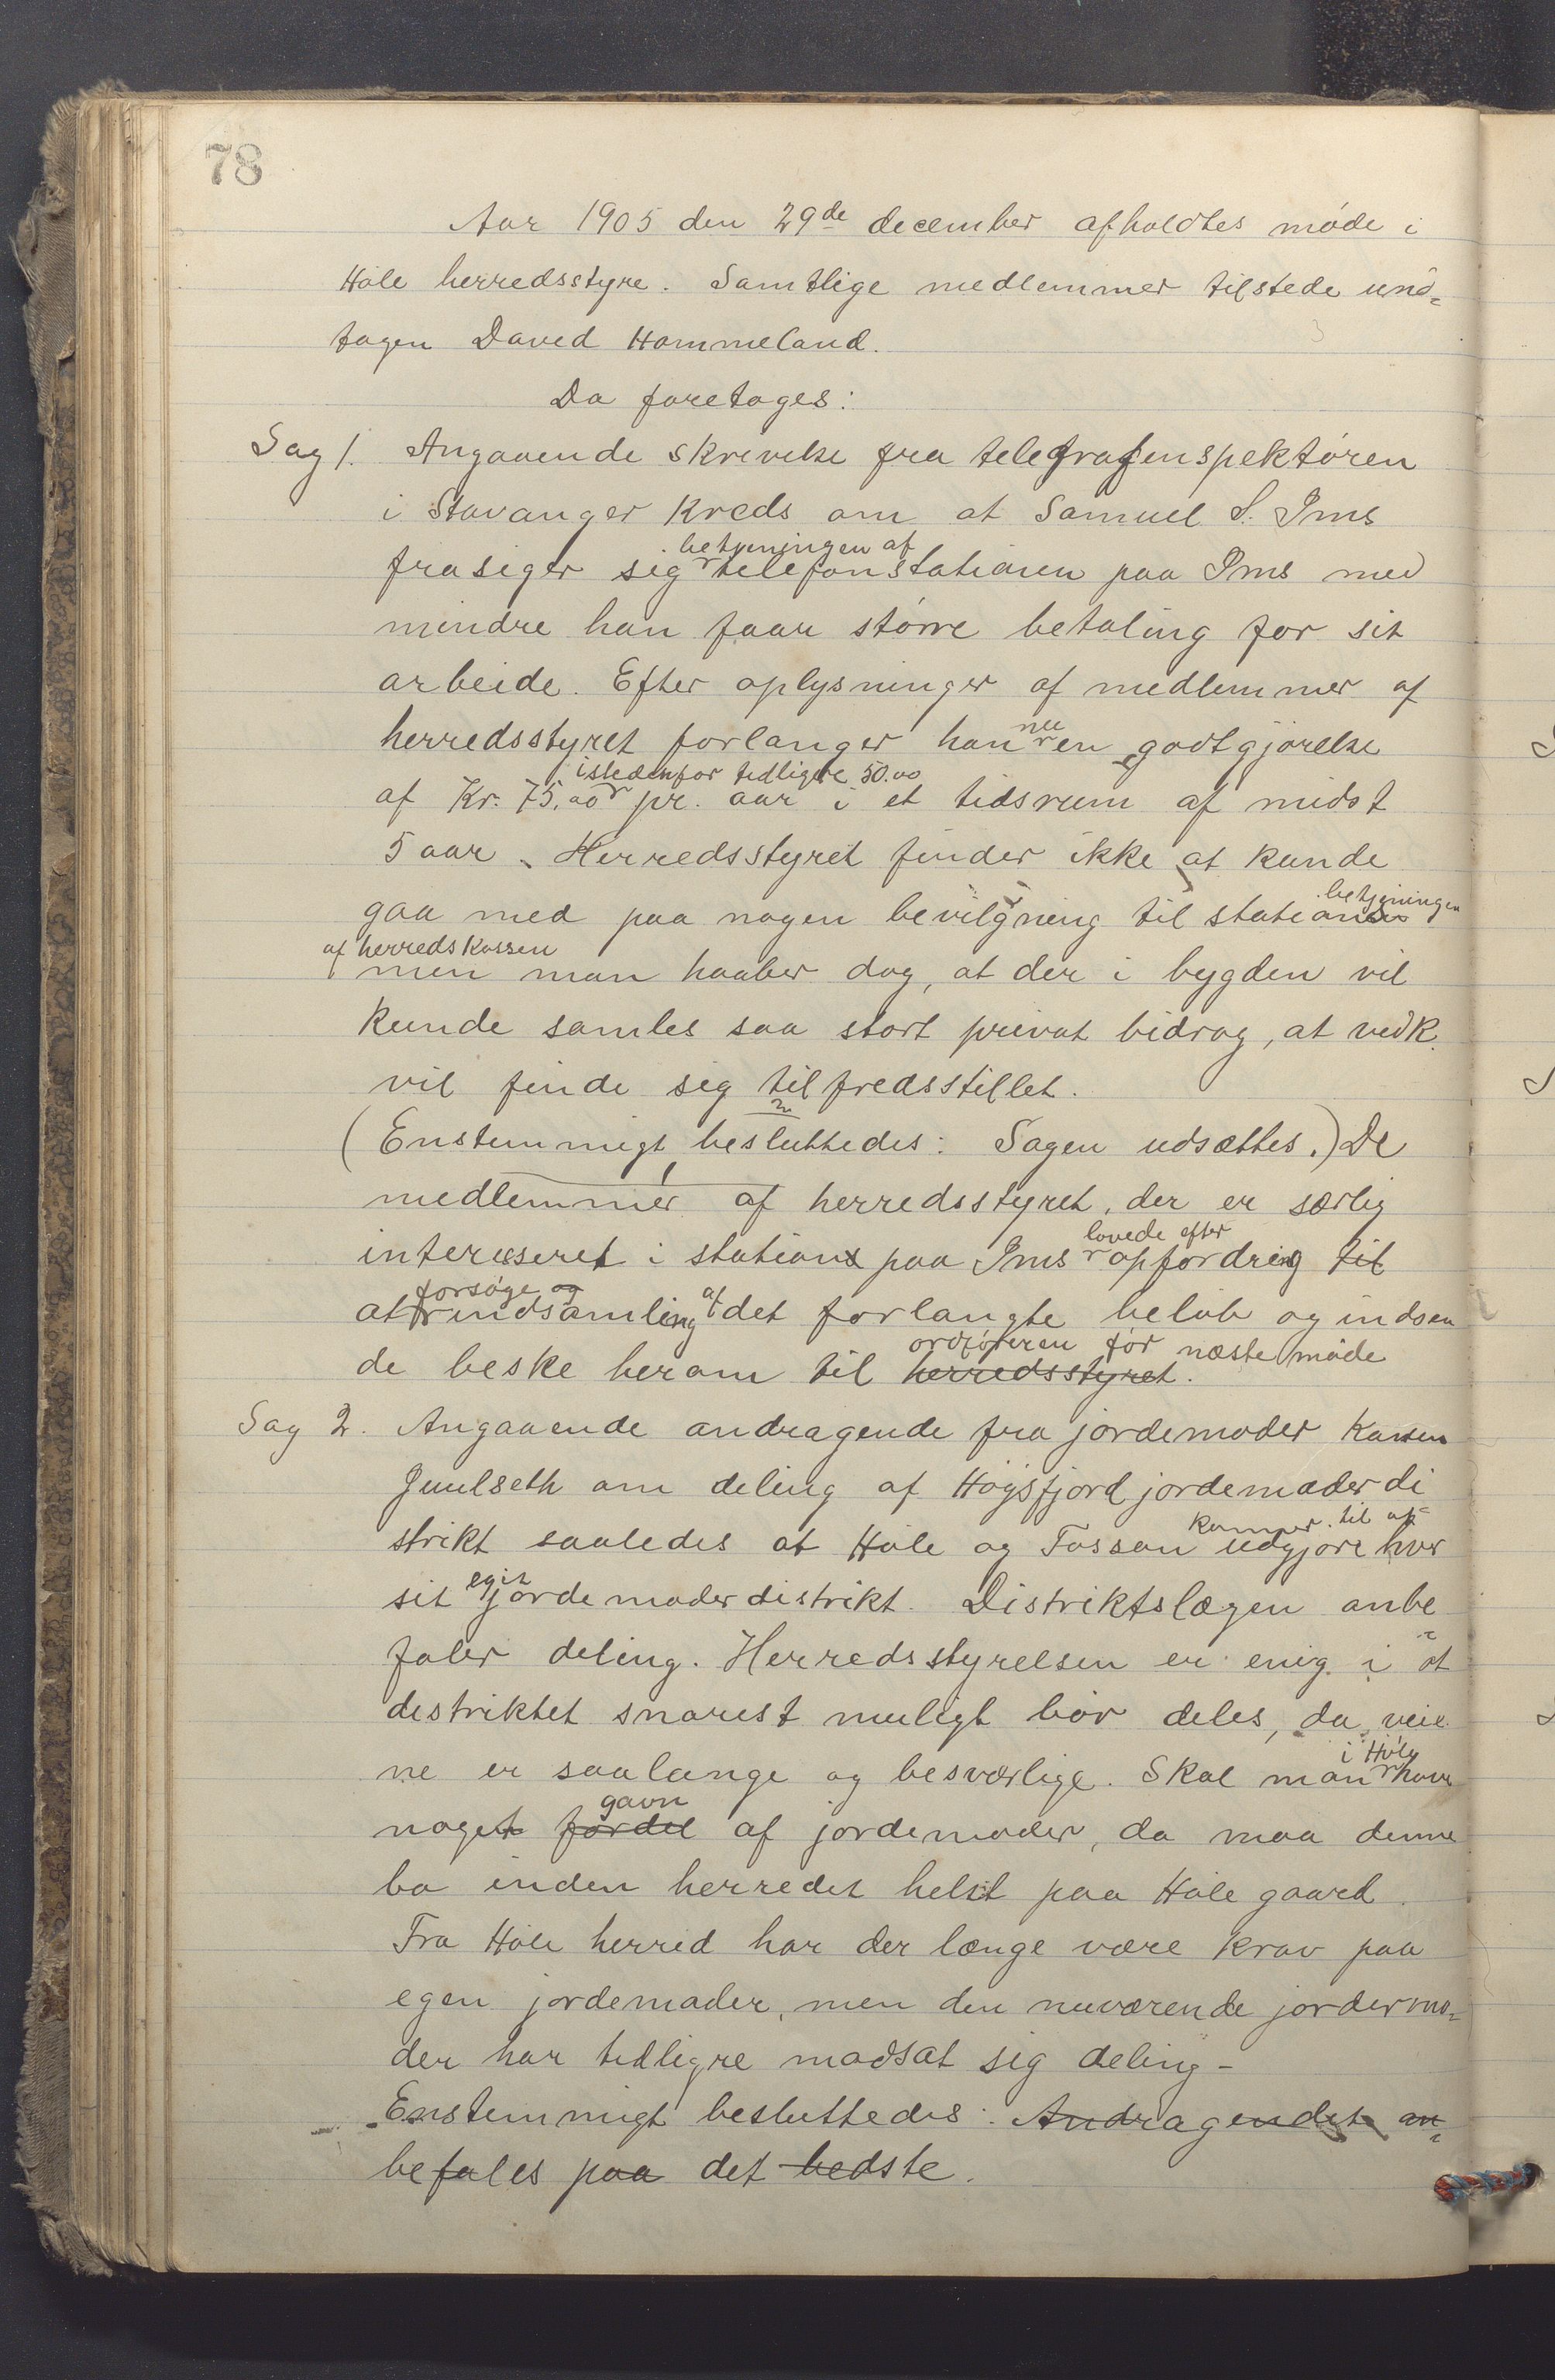 78
Aar 1905 den 29de december afholdtes møde i
Høle herredsstyre. Samtlige medlemmer tilstede und=
tagen David Hommeland.
Da foretoges:
Sag 1. Angaaende skrivelse fra telegrafinspektøren
i Stavanger Kreds om at Samuel S. Ims
betjeningen af
frasiger sig telefonstationen paa Ims med
mindre han faar større betaling for sit
arbeide. Efter oplysninger af medlemmer af
nu
herredsstyret forlanger han en godtgjørelse
istedenfor tidligere 50.00
af Kr. 75,00 pr. aar i et tidsrum af midst
5 aar. Herredsstyret finder ikke at kunde
betjeningen
gaa med paa nogen bevilgning til stations
af herredskassen
men man haaber dog, at der i bygden vil
kunde samles saa stort privat bidrag, at vedk.
vil finde sig tilfredsstillet.
(Enstemmigt besluttedes: Sagen udsættes.) De
medlemmer af herredsstyret, der er særlig
lovede efter
interesseret i station paa Ims opfordring til
forsøge og
af
at indsamling det forlangte beløb og indsen
ordføreren før næste møde
de beske herom til herredsstyret.
Sag 2. Angaaende andragende fra jordemoder Karen
Juulseth om deling af Høgsfjord jordemoderdi
kommer til at
strikt saaledes at Høle og Fossan udgjøre hver
eget
sit jordemoderdistrikt. Distriktslægen anbe
faler deling. Herredsstyrelsen er enig i at
distriktet snarest muligt bør deles, da veie
i Høle
ne er saa lange og besværlige. Skal man have
gavn
noget fordel af jordemoder, da maa denne
bo inden herredet helst paa Høle gaard.
Fra Høle herred har der længe være krav paa
egen jordemoder, men den nuværende jordermo=
der har tidligre modsat sig deling -
Enstemmigt besluttedes: Andragendet an=
befales paa det bedste.